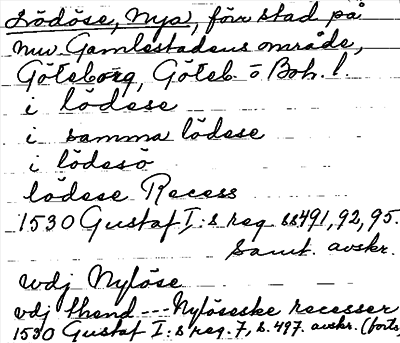 Lödöse, Nya, förr stad på
nuv. Gamlestadens område,
Göteborg, Göteb. o Boh. l.
i lödese
i samma lödese
i lödesö
lödese Recess
1530 Gustaf I:s reg. ss 491, 92, 95.
samt. avskr.
wdj Nylöse
vdj thend --- Nylöseske recesser
1530 Gustaf I:s reg. 7, s. 497. avskr. (forts.